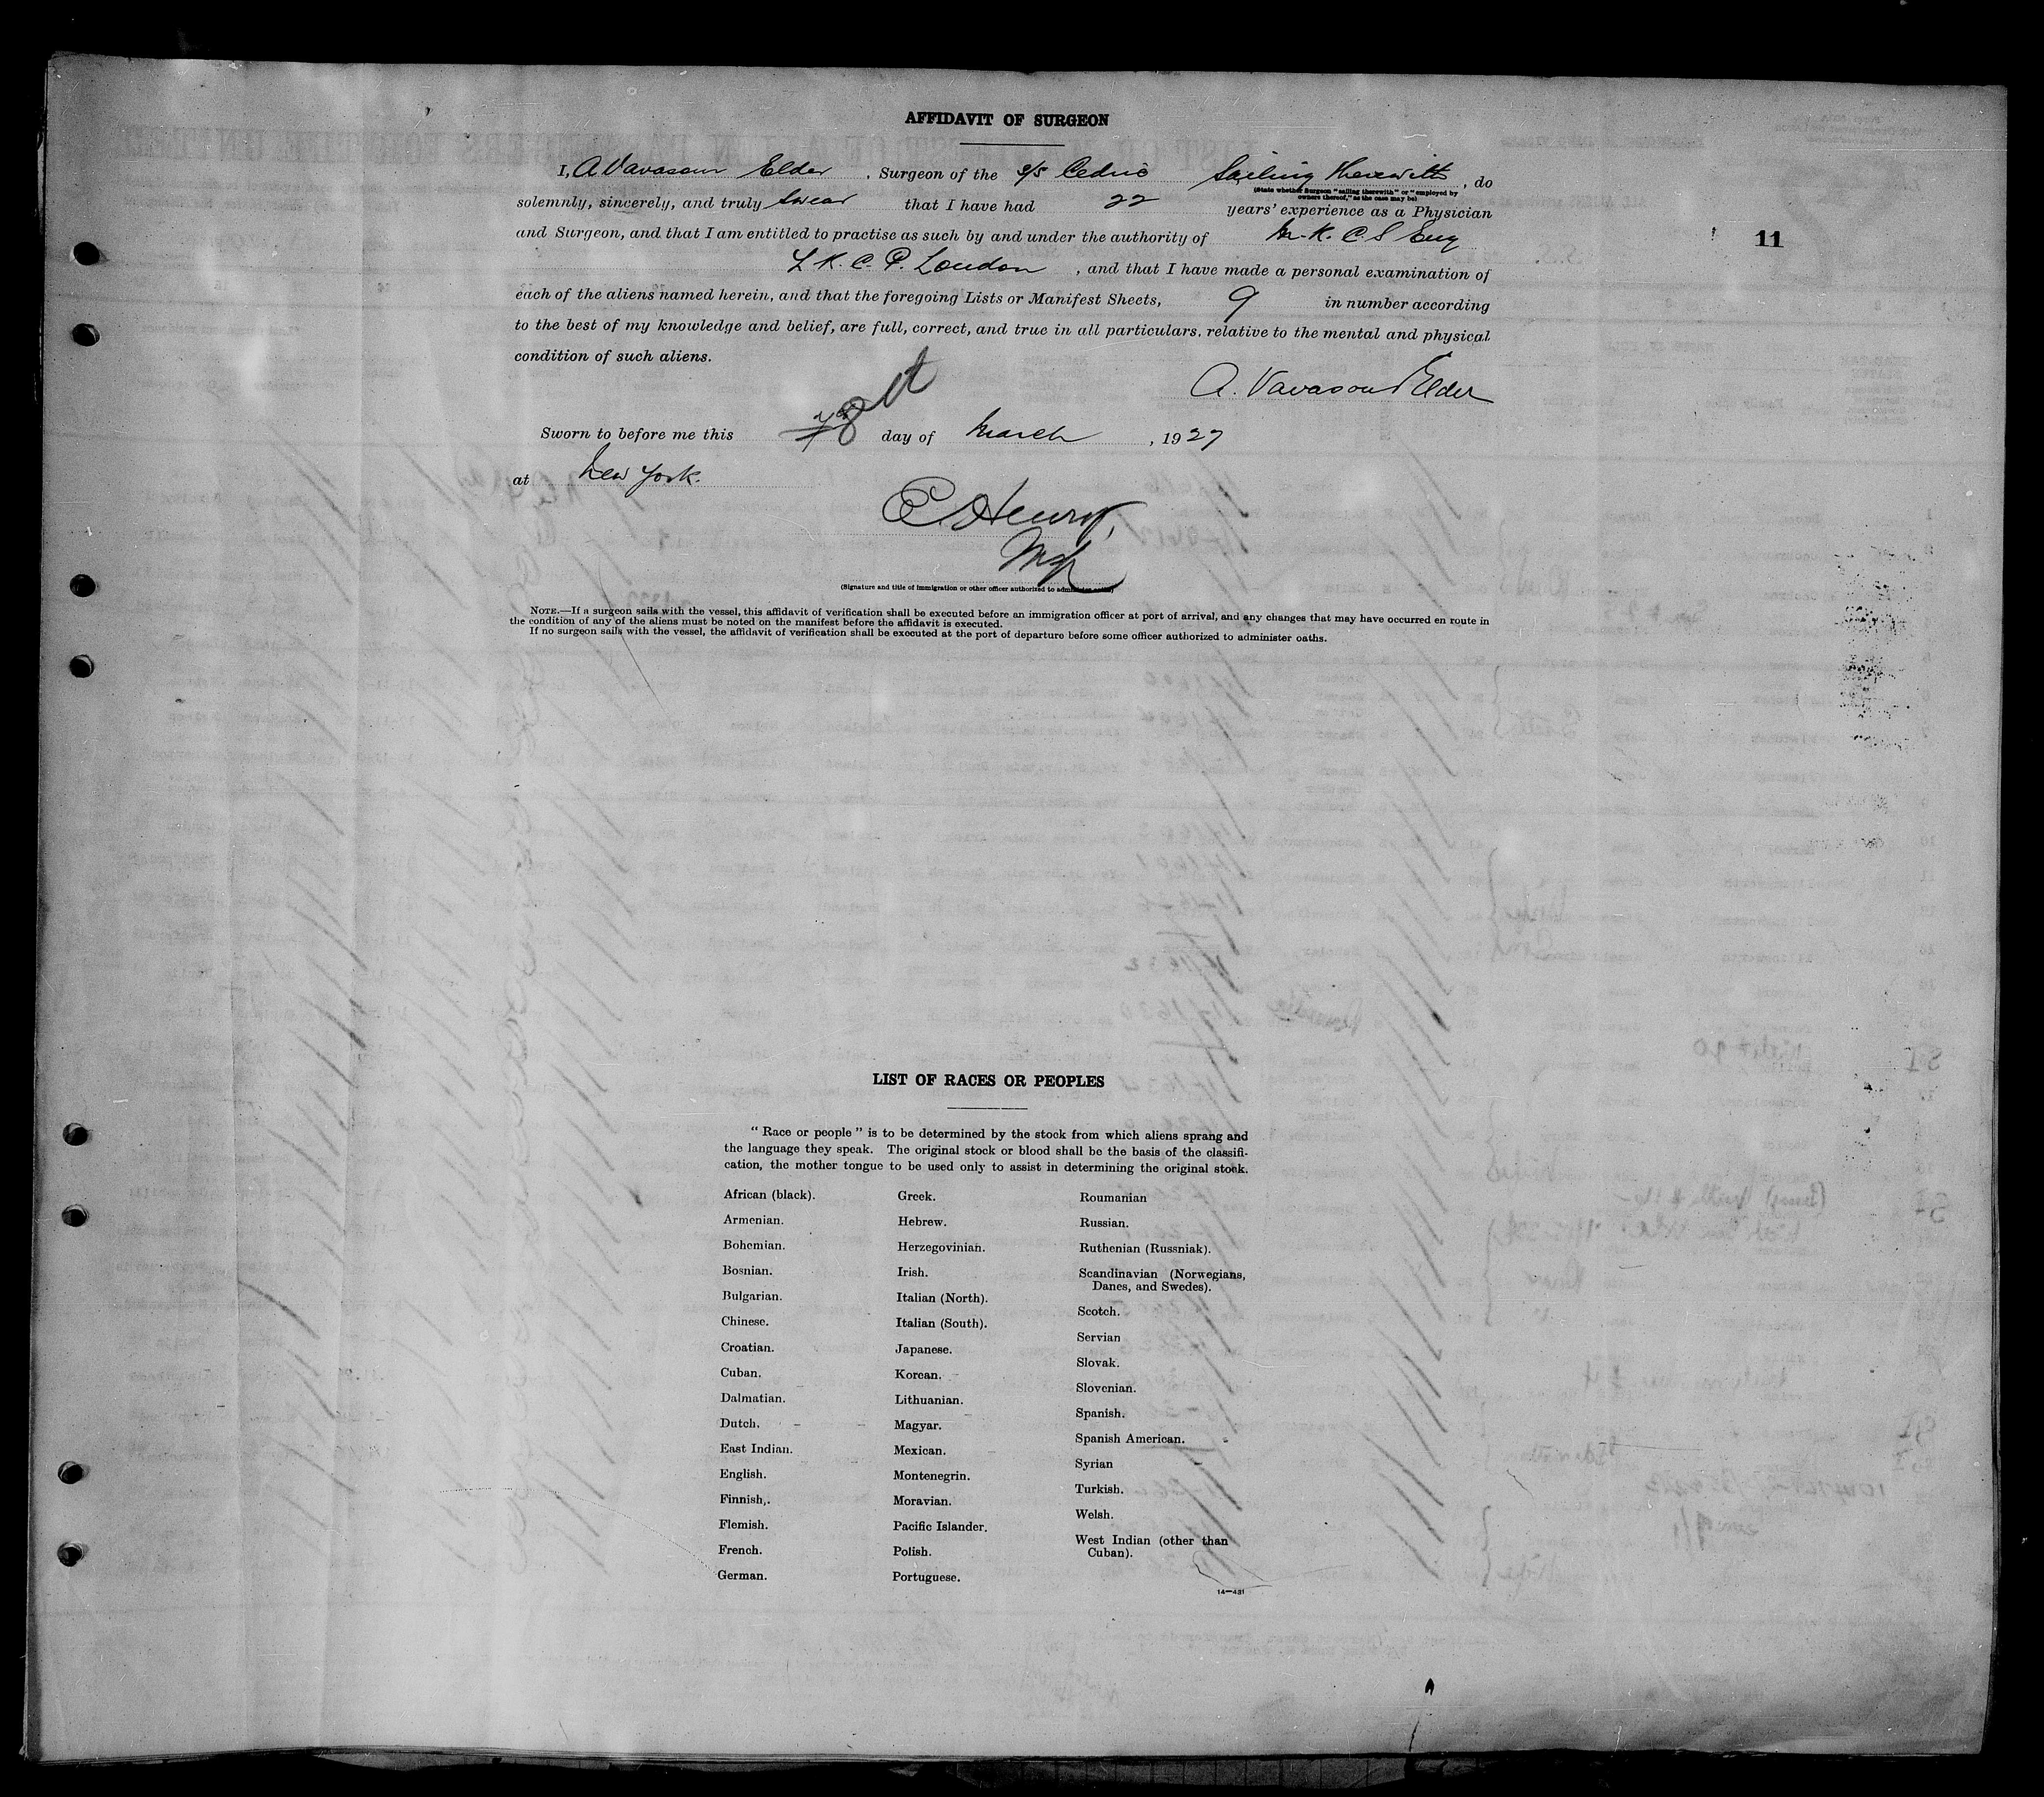 AFFIDAVIT OF SURGEON
I, A Vavasour Elder, Surgeon of the s/s Cedric Sailing therewith, do
(State whether Surgeon "sailing therewith" or "employed by
owners thereof," as the case may be)
solemnly, sincerely, and truly swear that I have had 22 years' experience as a Physician
and Surgeon, and that I am entitled to practise as such by and under the authority of M.R.C.S Eng
L.R.C.P. London, and that I have made a personal examination of
each of the aliens named herein, and that the foregoing Lists or Manifest Sheets, 9 in number according
to the best of my knowledge and belief, are full, correct, and true in all particulars, relative to the mental and physical
condition of such aliens.
A. Vavasour Elder
Sworn to before me this 8th day of March, 1927
at New York.
11
(Signature and title of immigration or other officer authorized to administer oaths)
NOTE.—If a surgeon sails with the vessel, this affidavit of verification shall be executed before an immigration officer at port of arrival, and any changes that may have occurred en route in
the condition of any of the aliens must be noted on the manifest before the affidavit is executed.
If no surgeon sails with the vessel, the affidavit of verification shall be executed at the port of departure before some officer authorized to administer oaths.
LIST OF RACES OR PEOPLES
"Race or people" is to be determined by the stock from which aliens sprang and
the language they speak. The original stock or blood shall be the basis of the classifi-
cation, the mother tongue to be used only to assist in determining the original stock.
African (black).
Armenian.
Bohemian.
Bosnian.
Bulgarian.
Chinese.
Croatian.
Cuban.
Dalmatian.
Dutch.
East Indian.
English.
Finnish.
Flemish.
French.
German.
Greek.
Hebrew.
Herzegovinian.
Irish.
Italian (North).
Italian (South).
Japanese.
Korean.
Lithuanian.
Magyar.
Mexican.
Montenegrin.
Moravian.
Pacific Islander.
Polish.
Portuguese.
Roumanian
Russian.
Ruthenian (Russniak).
Scandinavian (Norwegians,
Danes, and Swedes).
Scotch.
Servian
Slovak.
Slovenian.
Spanish.
Spanish American.
Syrian
Turkish.
Welsh.
West Indian (other than
Cuban).
14—431